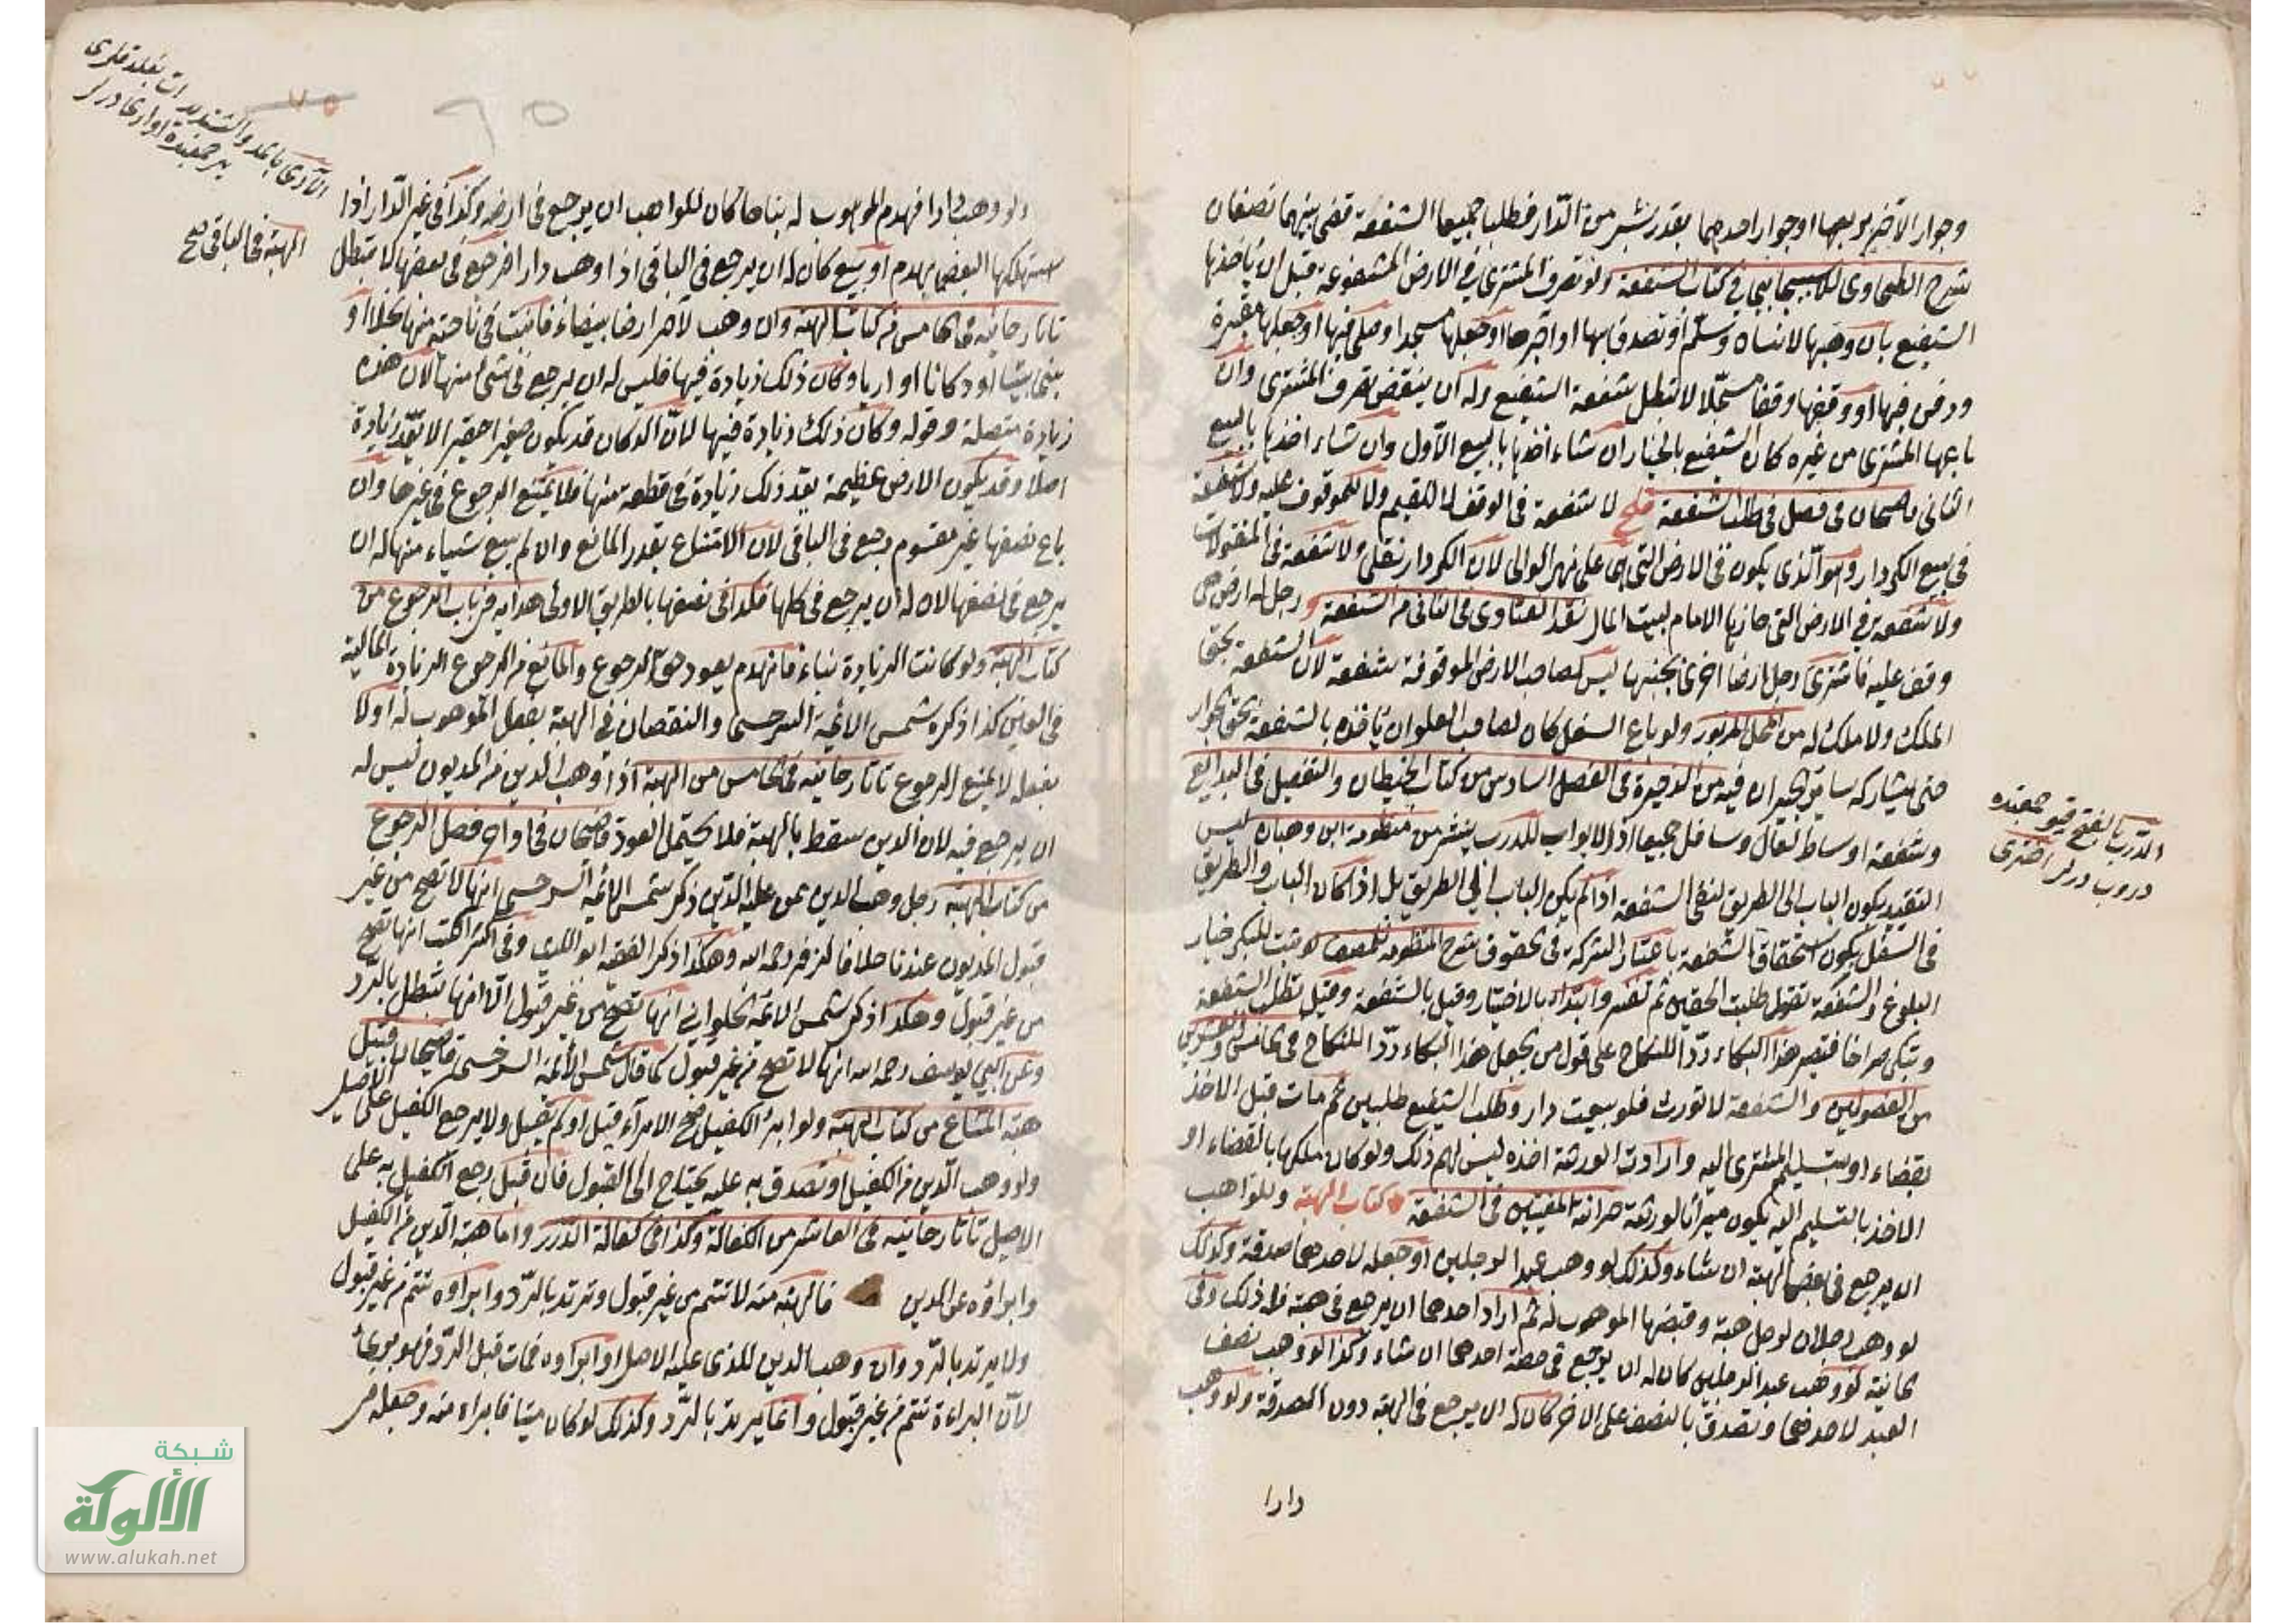 وجوار الآخر بربعها او جوار احدهما بقدر شبر من الدّار فطلبا جميعا الشفعة قضى بينهما نصفان
شرح الطحاوى للاسبيجابى في كتاب الشفعة ولو تصرف المشترى في الارض المشفوعة قبل ان ياخذها
الشفيع بان وهبها لانسان وسلّم او تصدق بها او آجرها او جعلها مسجدا وصلى فيها او جعلها مقبرة
ودفن فيها او وقفها وقفا مسجّلا لا تبطل شفعة الشفيع وله ان ينقض تصرف المشترى وان
باعها المشترى من غيره كان الشفيع بالخيار ان شاء اخذها بالبيع الاول وان شاء اخذها بالبيع
الثانى قاضيخان فى فصل فى طلب الشفعة لا شفعة فى الوقف لا للقيم ولا للموقوف عليه ولا شفعة
فى بيع الكردار وهو الّذى يكون فى الارض التى هى على نهر الموالى لان الكردار نقلى ولا شفعة فى المنقولات
ولا شفعة فى الارض التى حازها الامام لبيت المال نقد الفتاوى فى الثانى من الشفعة رجل له ارض هى
وقف عليه فاشترى رجل ارضا اخرى بجنبها ليس لصاحب الارض الموقوفة شفعة لان الشفعة بحق
الملك ولا ملك له من المحل المزبور ولو باع السفل كان لصاحب العلو ان ياخذه بالشفعة بحق الجوار
حتى يشاركه سائر الجيران فيه من الذخيرة فى الفصل السادس من كتاب الحيطان والتفصيل فى البدايع
وشفعة اوساط لعال وسافل جميعا اذ الابواب للدرب ينشر من منظومة ابن وهبان ليس
التقييد بكون الباب الى الطريق لنفى الشفعة اذا لم يكن الباب الى الطريق بل اذا كان الباب والطريق
فى السفل يكون استحقاق الشفعة باعتبار الشركة فى الحقوق شرح المنظومة للمصنف لو ثبت للبكر خيار
البلوغ والشفعة تقول طلبت الحقين ثم تفسر وابتداء بالاختيار وقيل بالشفعة وقيل تطلب الشفعة
وتبكى صراخا فيصير هذا البكاء ردّا للنكاح على قول من يجعل هذا البكاء ردّا للنكاح فى الخامس والعشرين
من الفصولين والشفعة لا تورث فلو بيعت دار وطلب الشفيع طلبين ثم مات قبل الاخذ
بقضاء او بتسليم المشترى اليه وارادت الورثة اخذه ليس لهم ذلك ولو كان ملكها بالقضاء او
الاخذ بالتسليم اليه يكون ميراثا لورثته خزانة المفتين فى الشفعة كتاب الهبة وللواهب
ان يرجع فى بعض الهبة ان شاء وكذلك لو وهب عبدا لرجلين او جعله لاحدهما صدقة وكذلك
لو وهب رجلان لرجل هبة وقبضها الموهوب له ثم اراد احدهما ان يرجع فى هبته فله ذلك وفى
الخانية لو وهب عبدا لرجلين كان له ان يرجع فى حصة احدهما ان شاء وكذا لو وهب نصف
العبد لاحدهما وتصدق بالنصف على الآخر كان له ان يرجع فى الهبة دون الصدقة ولو وهب
دارا
الدرب بالفتح قيو جمعنده
دروب درلر اخترى
ولو وهب دارا فهدم الموهوب له بناها كان للواهب ان يرجع فى ارضه وكذا فى غير الدار اذا
استهلكها البعض بهدم او بيع كان له ان يرجع فى الباقى اذا وهب دارا فرجع فى بعضها لا تبطل
الهبة فى الباقى صح
تاتارخانيه فى الخامس من كتاب الهبة وان وهب لآخر ارضا بيضاء فانبت فى ناحية منها نخلا او
بنى بيتا او دكانا او اريا وكان ذلك زيادة فيها فليس له ان يرجع فى شئ منها لان هذه
زيادة متصلة وقوله وكان ذلك زيادة فيها لانّ الدكان قد يكون صغيرا حقيرا لا تعّد زيادة
اصلا وقد يكون الارض عظيمة يعد ذلك زيادة فى قطعة منها فلا يمتنع الرجوع فى غيرها وان
باع نصفها غير مقسوم رجع فى الباقى لان الامتناع بقدر المانع وان لم يبع شياء منها له ان
يرجع فى نصفها لان له ان يرجع فى كلها فكذا فى نصفها بالطريق الاولى هدايه من باب الرجوع من
كتاب الهبة ولو كانت الزيادة بناء فانهدم يعود حق الرجوع والمانع من الرجوع الزيادة المالية
فى العين كذا ذكره شمس الائمة السرخسى والنقصان فى الهبة بفعل الموهوب له او لا
بفعله لا يمنع الرجوع تاتارخانيه فى الخامس من الهبة اذا وهب الدين من المديون ليس له
ان يرجع فيه لان الدين سقط بالهبة فلا يحتمل العود قاضيخان فى اواخر فصل الرجوع
من كتاب الهبة رجل وهب الدين ممن عليه الدين ذكر شمس الائمة السرخسى انها لا تصح من غير
قبول المديون عندنا خلافا لزفر رحمه الله وهكذا ذكر الفقيه ابو الليث وفى اكثر الكتب انها تصح
من غير قبول وهكذا ذكر شمس الائمة الحلوانى انها تصح من غير قبول الّا انها تبطل بالرّد
وعن ابى يوسف رحمه الله انها لا تصح من غير قبول كما قال شمس الائمة السرخسى قاضيخان قبيل
هبة المشاع من كتاب الهبة ولو ابرئ الكفيل صح الابرآء قبل او لم يقبل ولا يرجع الكفيل على الاصيل
ولو وهب الدين من الكفيل او تصدق به عليه يحتاج الى القبول فان قبل رجع الكفيل به على
الاصيل تاتارخانيه فى العاشر من الكفالة وكذا فى كفالة الدرر واما هبة الدين من الكفيل
وابراؤه عن الدين فالهبة منه لا تتم من غير قبول وترتد بالرّد وابراؤه تتم من غير قبول
ولا يرتد بالرّد وان وهب الدين للذى عليه الاصل او ابراؤه فمات قبل الرّد فهو برئ
لانّ البراءة تتم من غير قبول وانما يرتد بالرّد وكذلك لو كان ميتا فابراء منه وجعله فى
شبكة
الألوكة
www.alukah.net